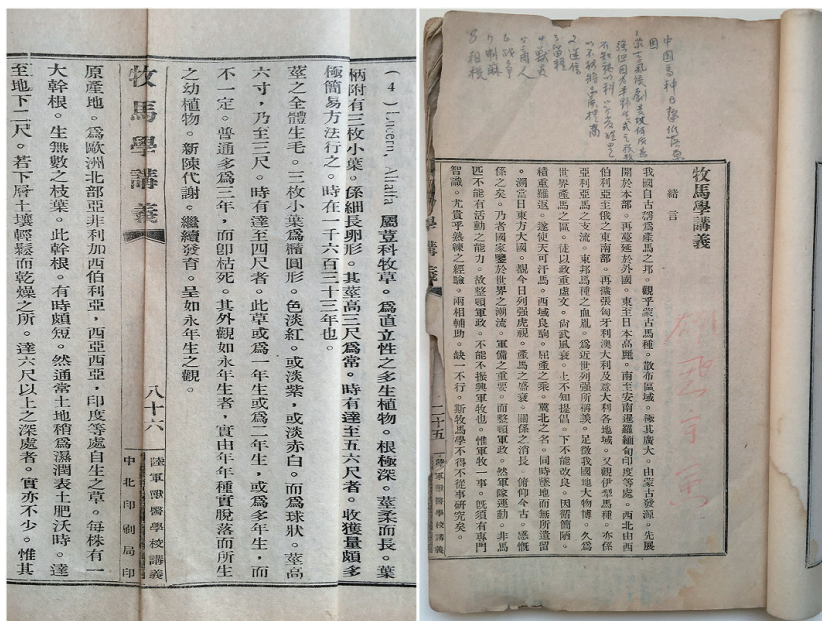 (4) Lucern, Alfalfa 屬荳科牧草。爲直立性之多生植物。根極深。莖柔而長。葉
柄附有三枚小葉。係細長卵形。其莖高三尺爲常。時有達至五六尺者。收獲量頗多
極簡易方法行之。時在一千六百二十三年也。
莖之全體生毛。三枚小葉爲橢圓形。色淡紅。或淡紫。或淡赤白。而爲球狀。莖高
六寸，乃至三尺。時有達至四尺者。此草或爲一年生或爲二年生，或爲多年生，而
不一定。普通多爲三年，而卽枯死。其外觀如永年生者，實由年年種實脫落而所生
之幼植物。新陳代謝。繼續發育。呈如永年生之觀。
牧馬學講義
八十六
陸軍獸醫學校講義
中北印刷局印
原產地。爲歐洲北部亞非利加西伯利亞，西亞西亞，印度等處自生之草。每株有一
大幹根。生無數之枝葉。此幹根。有時頗短。然通常土地稍爲濕潤表土肥沃時。達
至地下二尺。若下層土壤輕鬆而乾燥之所。達六尺以上之深處者。實亦不少。惟其
中國馬種日
牧馬學講義
緒言
我國自古稱爲產馬之邦。觀乎蒙古馬種。散布區域。極其廣大。由蒙古發源。先展
開於本部。再蔓延於外國。東至日本高麗。南至安南暹羅緬甸印度等處。西北由西
伯利亞至俄之東南部。再瀰漲匈牙利澳大利及意大利各地域。又觀伊犂馬種。亦係
亞利亞馬之支流。東邦馬種之血胤。爲近世列強所稱美。足徵我國地大物博。久爲
世界產馬之區。徒以政重虛文。尙武風衰。上不知提倡。下不能改良。因循簡陋。
積重難返。遂使天可汗馬。西域良駒。屈產之乘。冀北之名。同時墜地而無所遺留
。溯當日東方大國。觀今日列强虎視。產馬之盛衰。關係之消長。俯仰今古。感慨
係之矣。乃者國家鑒於世界之潮流。軍備之重要。而整頓軍政。然軍隊運動。非馬
匹不能有活動之能力。故整頓軍政。不能不振興軍牧也。惟軍牧一事。旣須有專門
智識。尤貴乎熟練之經驗。兩相輔助。缺一不行。斯牧馬學不得不從事研究矣。
二十五
陸軍獸醫學校講義